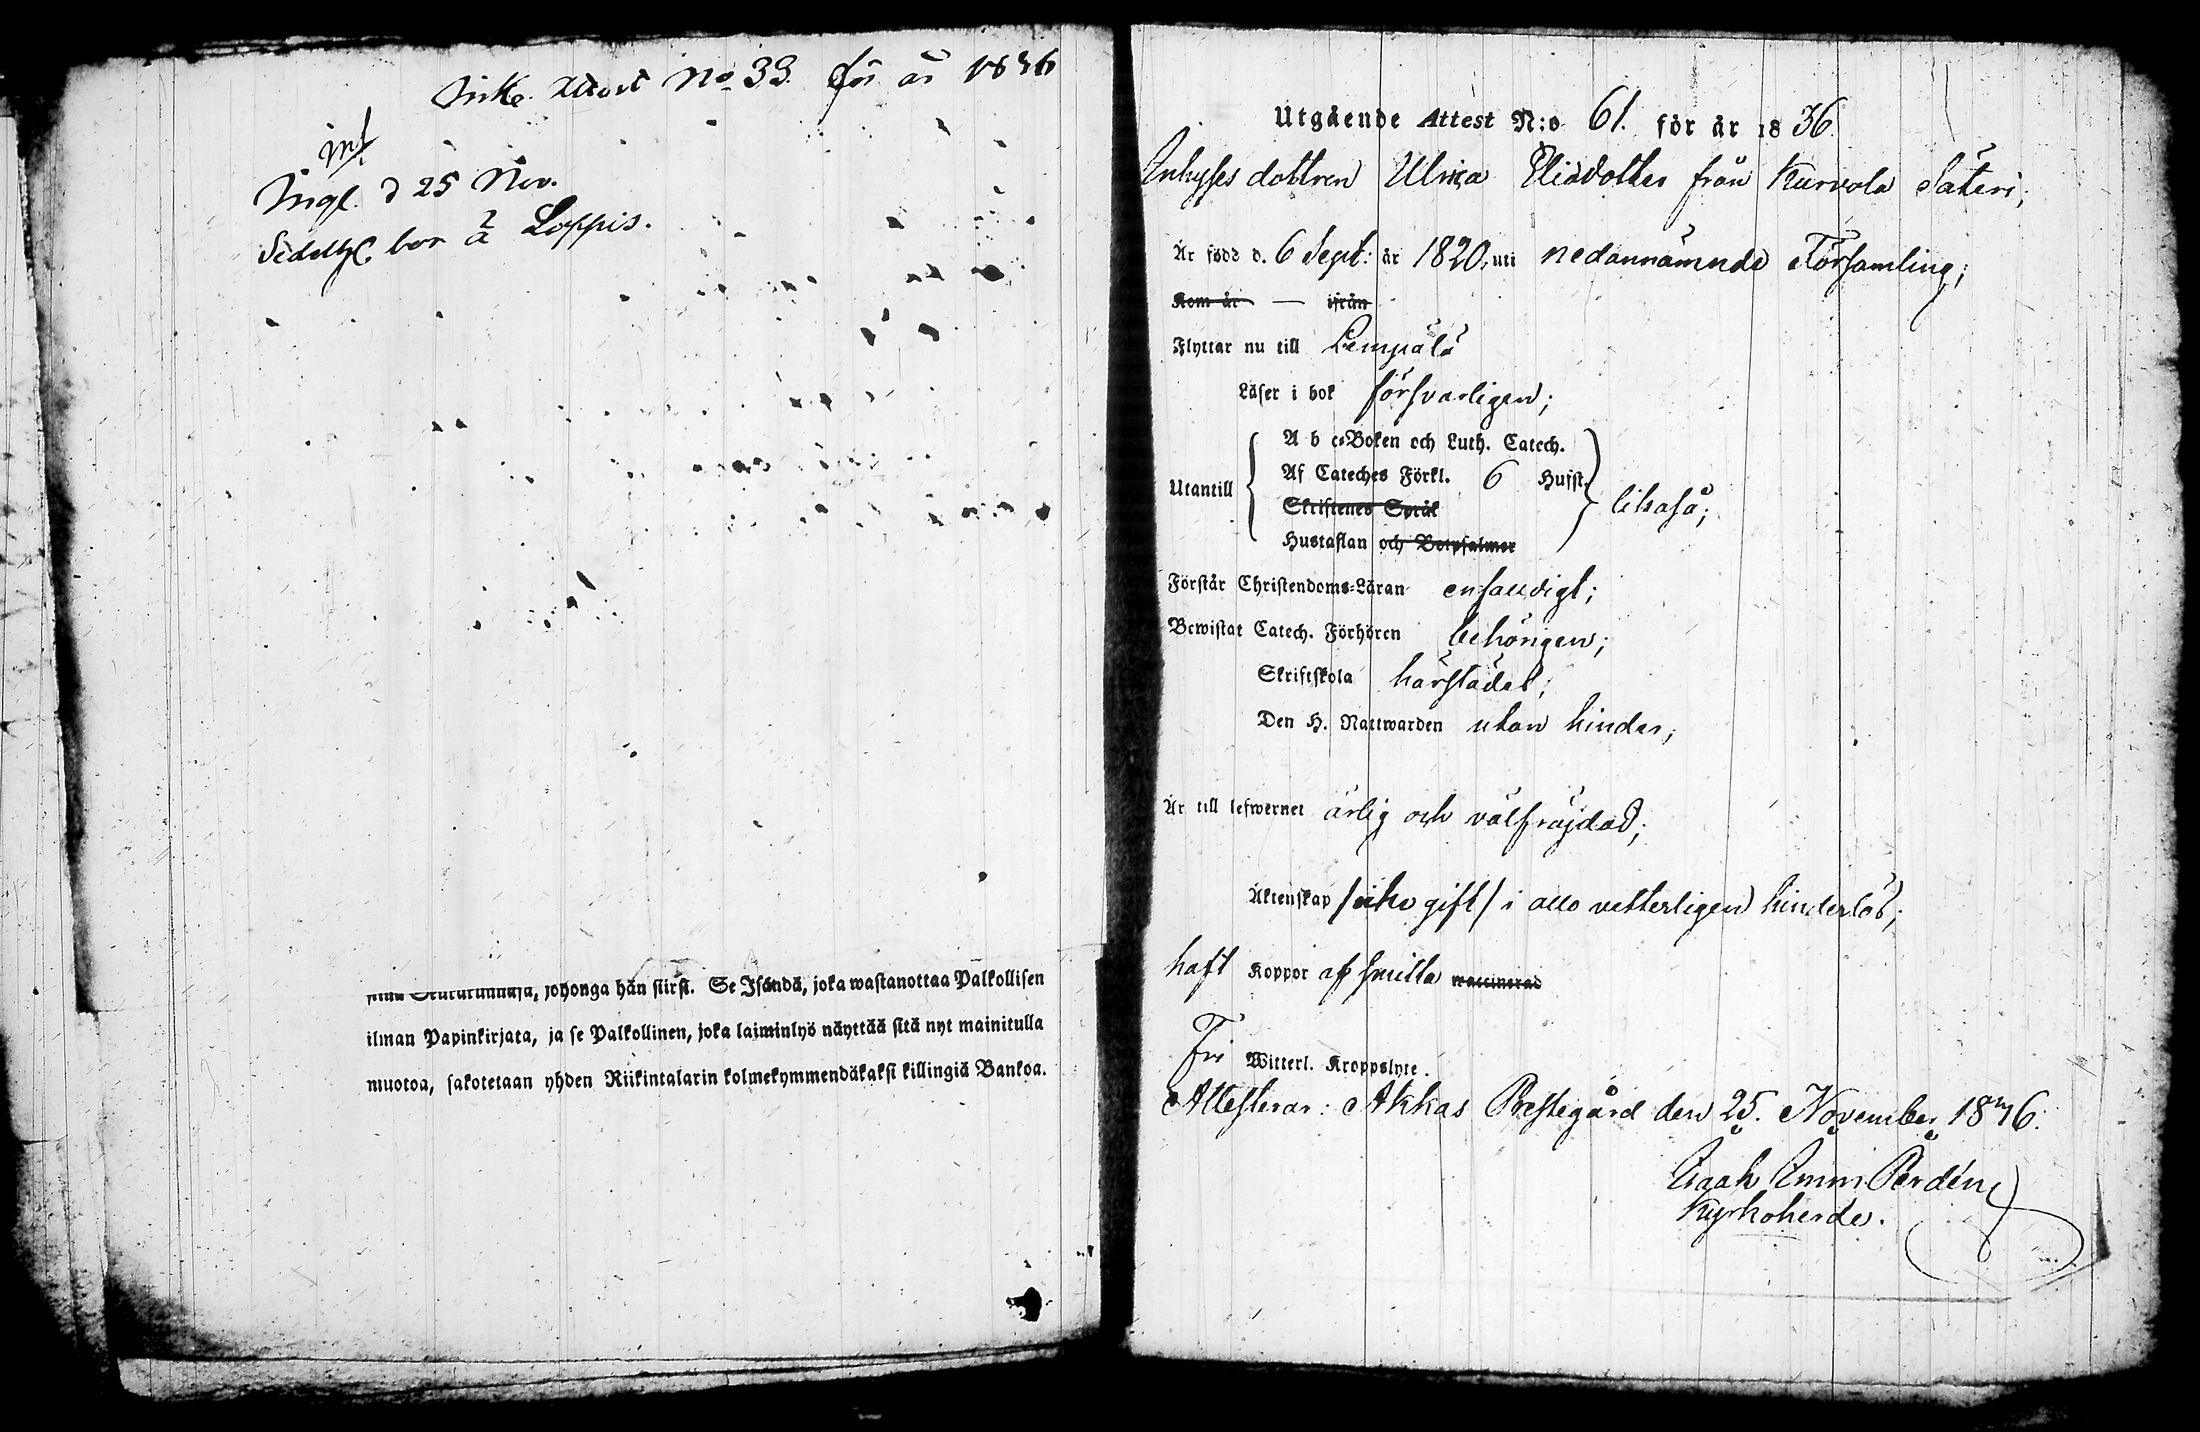 Inke. Attest No 33. för år 1836
int
Ingl. d 25 Nov.
Sedelh. bor å Loppis.
joho​nga hän siirst. Se Isändä, joka wastanottaa Palkollisen
ilman Papinkirjata, ja se Palkollinen, joka laiminlyö näyttää sitä nyt mainitulla
muotoa, sakotetaan yhden Riikintalarin kolmekymmendäkaksi killingiä Bankoa.
Utgående Attest N:o 61. för år 1836.
Inhyses dottren Ulrica Eliædotter från Kurvola Säteri;
Är född d. 6 Sept: år 1820, uti nedannämnde Församling;
Kom år — ifrån
Flyttar nu till Lempälä
Läser i bok försvarligen;
Utantill
A b c-Boken och Luth. Catech.
Af Cateches Förkl. 6 Hufst.
Skriftenes Språk
Hustaflan och Botpsalmer
likaså;
Förstår Christendoms-Läran enfaldigt;
Bewistat Catech. Förhören behörigen;
Skriftskola härstädes;
Den H. Nattwarden utan hinder;
Är till lefwernet ärlig och välfräjdad;
Äktenskap /icke gift/ i allo vetterligen hinderlös;
haft Koppor af smitta waccinerad
Fri Witterl. Kroppslyte.
Attesterar: Akkas Prestegård den 25. November 1836.
Isaak Emm. Perdén
Kyrkoherde.